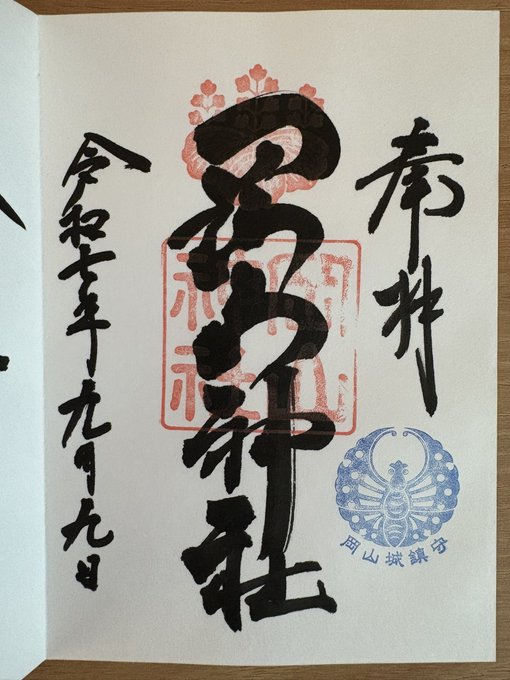 奉拝
岡山神社
岡山神社
岡山城鎮守
令和七年九月九日